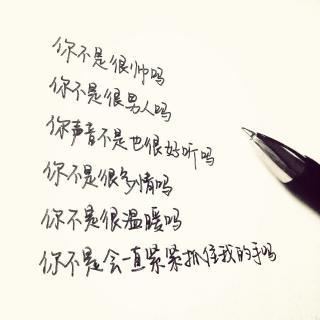 你不是很帅吗
你不是很男人吗
你声音不是也很好听吗
你不是很多情吗
你不是很温暖吗
你不是会一直紧紧抓住我的手吗